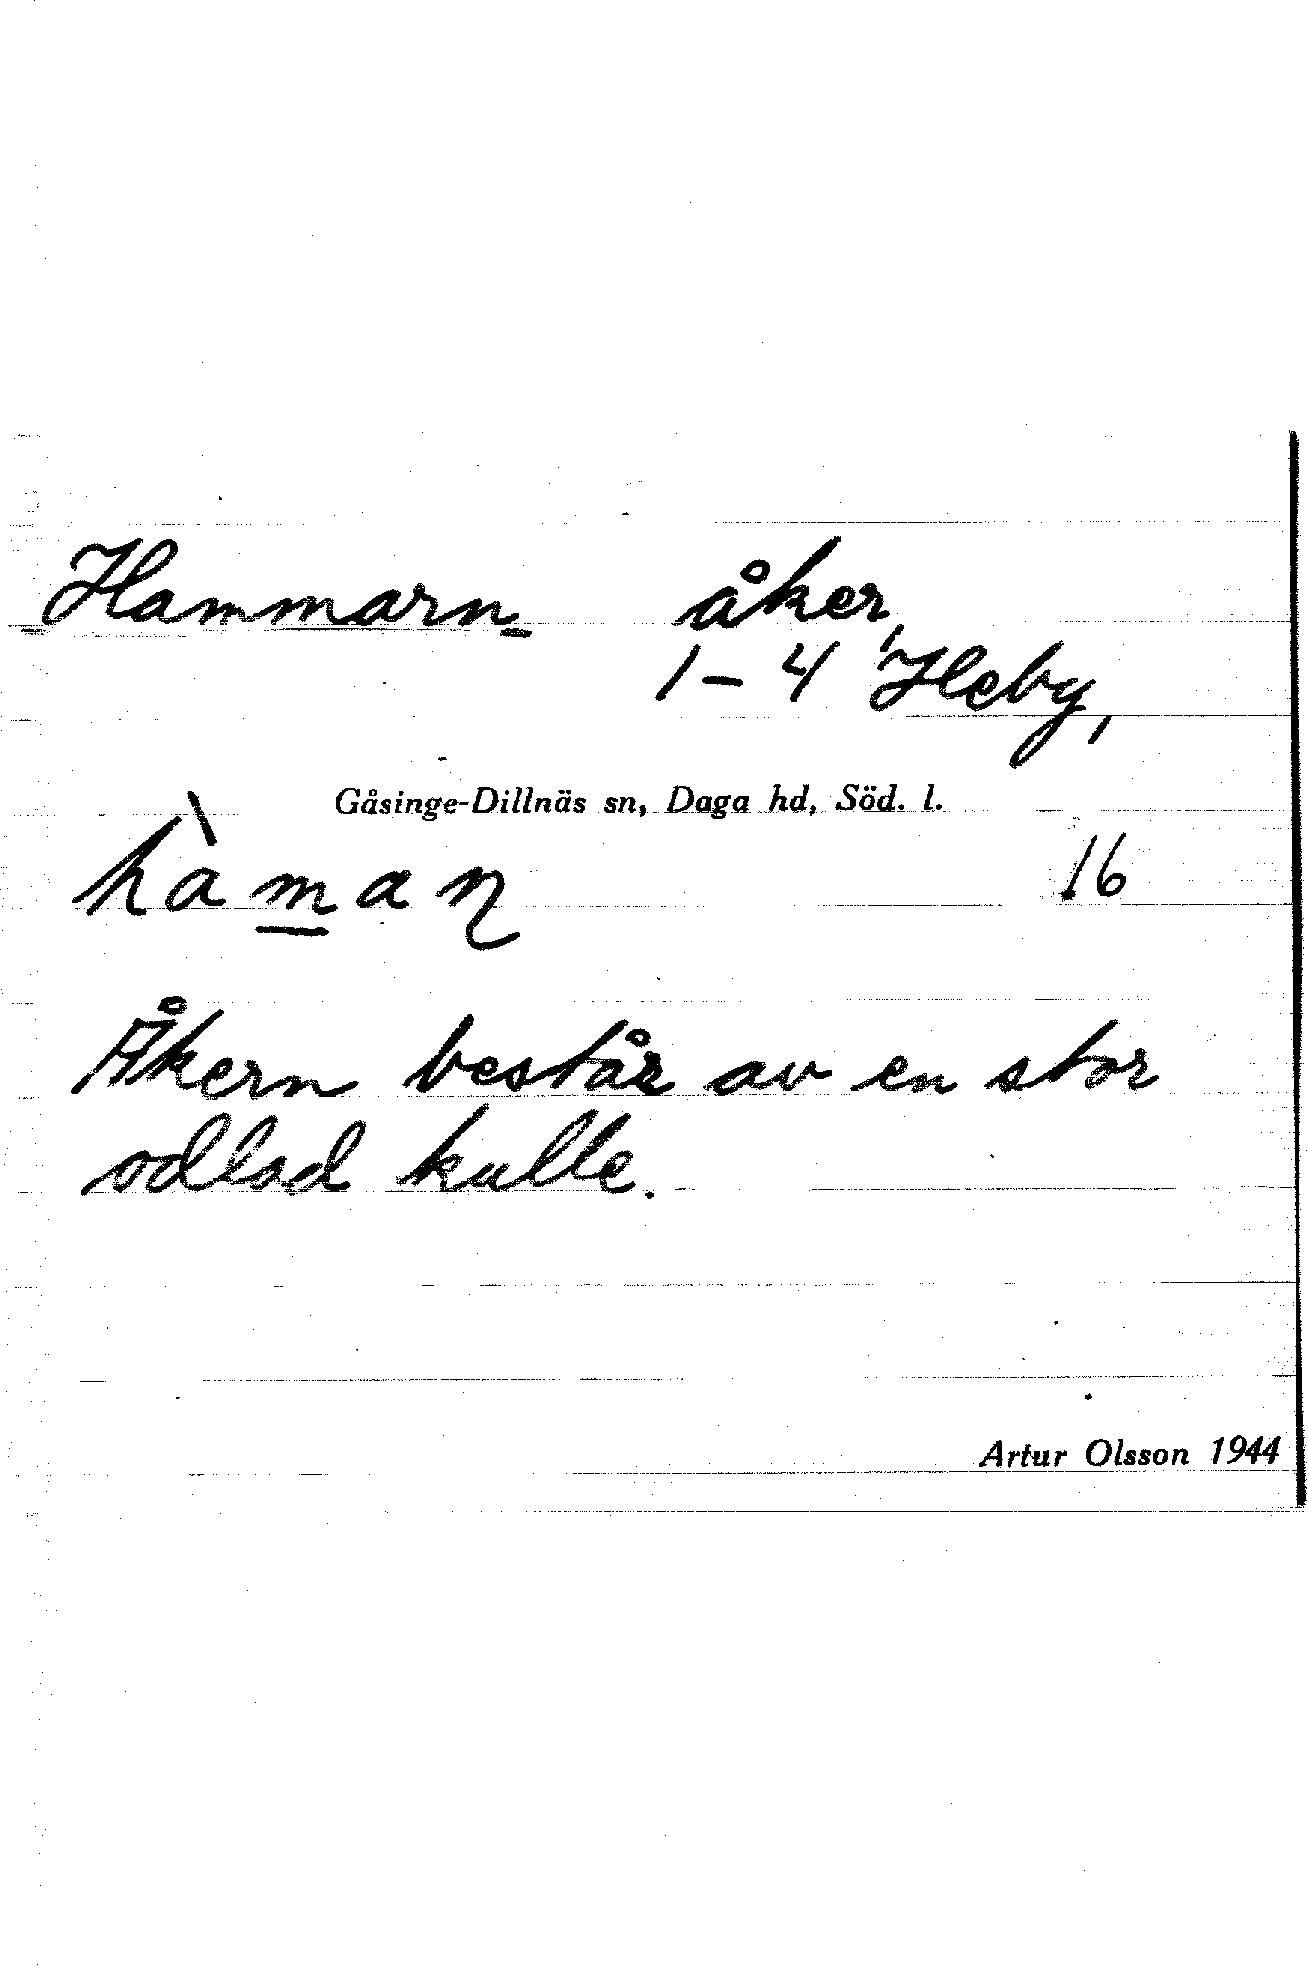 Hammarn åker,
1-4 Heby,
Gåsinge-Dillnäs sn, Daga hd, Söd. l.
hàmaɳ 16
Åkern består av en stor
odlad kulle.
Artur Olsson 1944